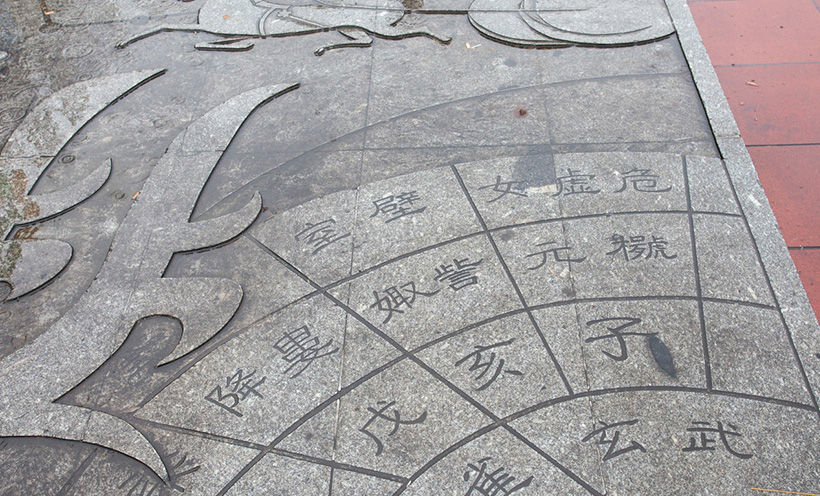 室 壁
女 虚 危
娵 訾
元
降 婁
亥
子
戊
玄 武